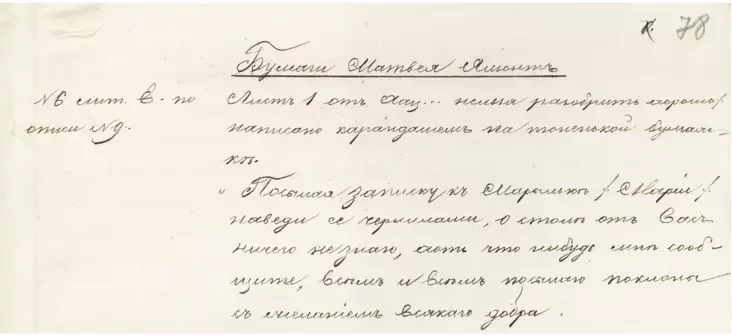 к. 78
Бумаги Матвея Ямонтъ
№6 лит. Е. по
описи №9.
Листъ 1 отъ Аац... нельзя разобрать хорошо/
написано карандашемъ на тоненькой бумаж-
кѣ.
„ Посылая записку къ Марыльцѣ / Маріи /
наведи ее чернилами, я столь отъ Васъ
ничего не знаю, хоть что нибудь мнѣ сооб-
щите, всѣмъ и всѣмъ посылаю поклоны
съ желаніемъ всякаго добра.